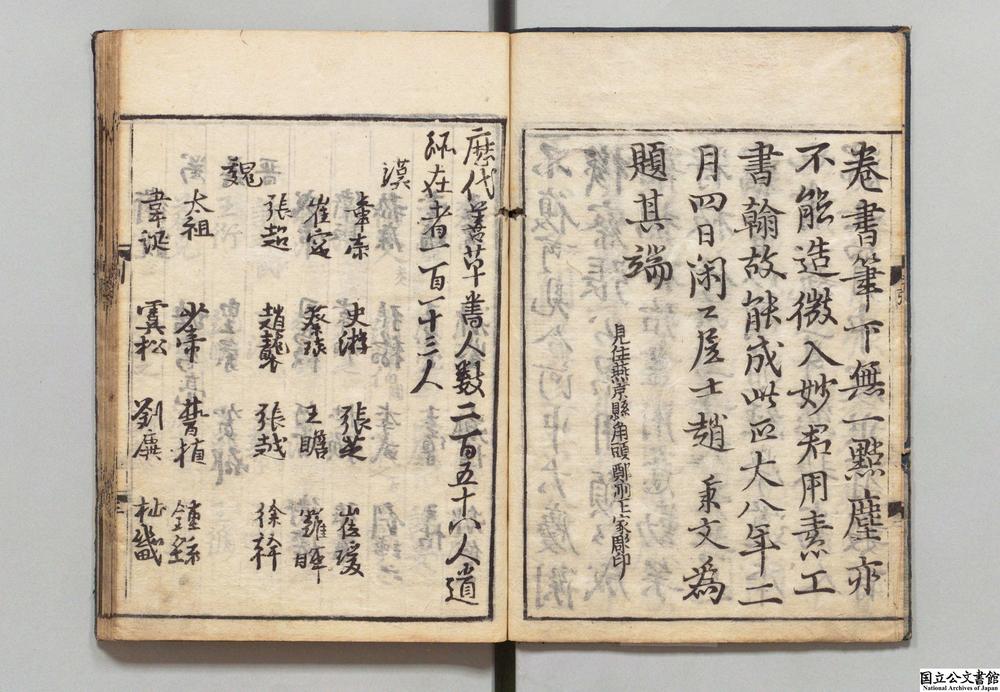 卷書筆下無一點塵亦
不能造微入妙君用素工
書翰故能成此正大八年二
月四日閑々居士趙秉文為
題其端
見住燕京縣角頭鄭州王家彫印
歷代善草書人數二百五十六人遺
跡在者一百一十三人
漢
章帝 史游 張芝 崔瑗
崔寔 蔡琰 王瞻 羅暉
張超 趙襲 張越 徐幹
魏
太祖 少帝 曹植 鍾繇
韋誕 虞松 劉廙 杜畿
国立公文書館
National Archives of Japan